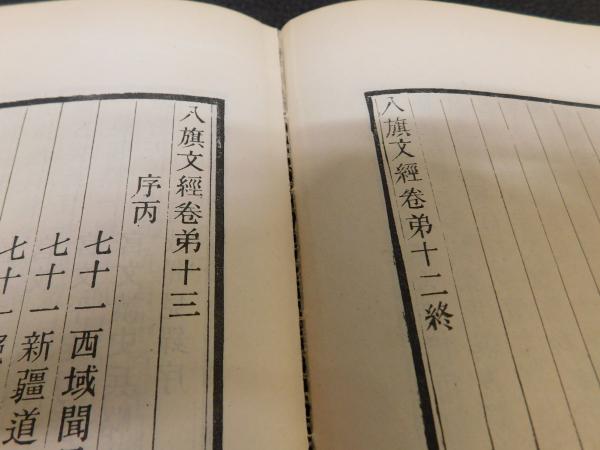 八旗文經卷弟十二終
八旗文經卷弟十三
序丙
七十一西域聞
七十一新疆道
七十一